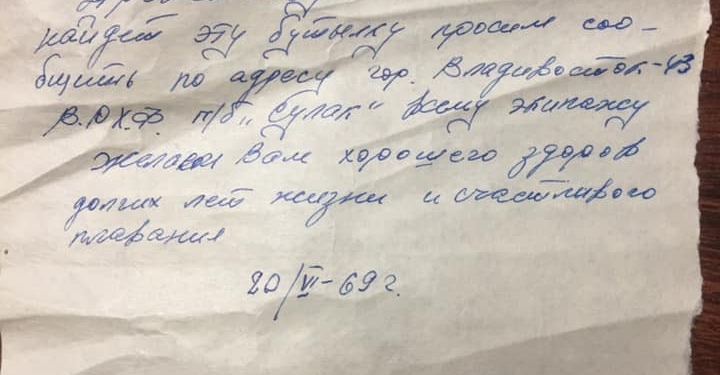 найдет эту бутылку просим соо-
бщить по адресу гор. Владивосток-43
В.РХ.Ф. п/б „Сулак" всему экипажу
желаем Вам хорошего здоров
долгих лет жизни и счастливого
плавания
20/VI-69г.